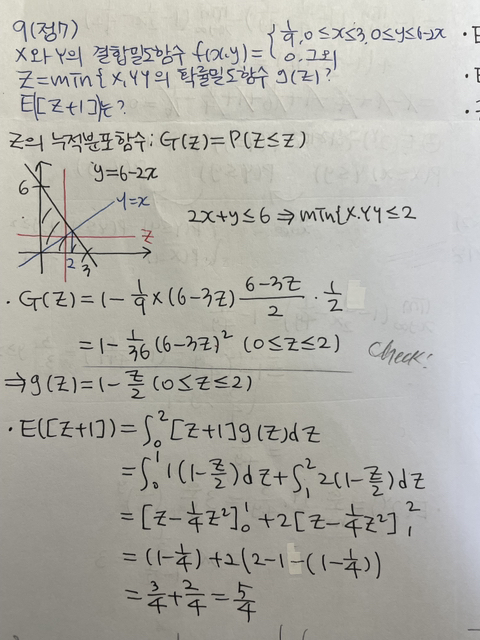 9(정7)
X와 Y의 결합밀도함수 f(x,y)={1/9, 0≤x≤3, 0≤y≤6-2x
0, 그외
Z=min{X,Y}의 확률밀도함수 g(z)?
E([Z+1])는?
Z의 누적분포함수: G(z)=P(Z≤z)
6
y=6-2x
y=x
z
2
3
2x+y≤6 ⇒ min{X,Y}≤2
· G(z)=1-1/9×(6-3z) (6-3z)/2 · 1/2
=1-1/36(6-3z)² (0≤z≤2)
check!
⇒g(z)=1-z/2 (0≤z≤2)
· E([Z+1])=∫₀²[z+1]g(z)dz
=∫₀¹1(1-z/2)dz+∫₁²2(1-z/2)dz
=[z-1/4z²]₀¹+2[z-1/4z²]₁²
=(1-1/4)+2(2-1-(1-1/4))
=3/4+2/4=5/4